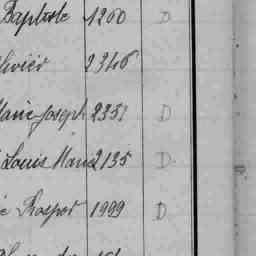 Baptiste 1260 D
Olivier 2346
Marie-Joseph 2351 D
Louis Marie 2135 D
Prosper 1999 D